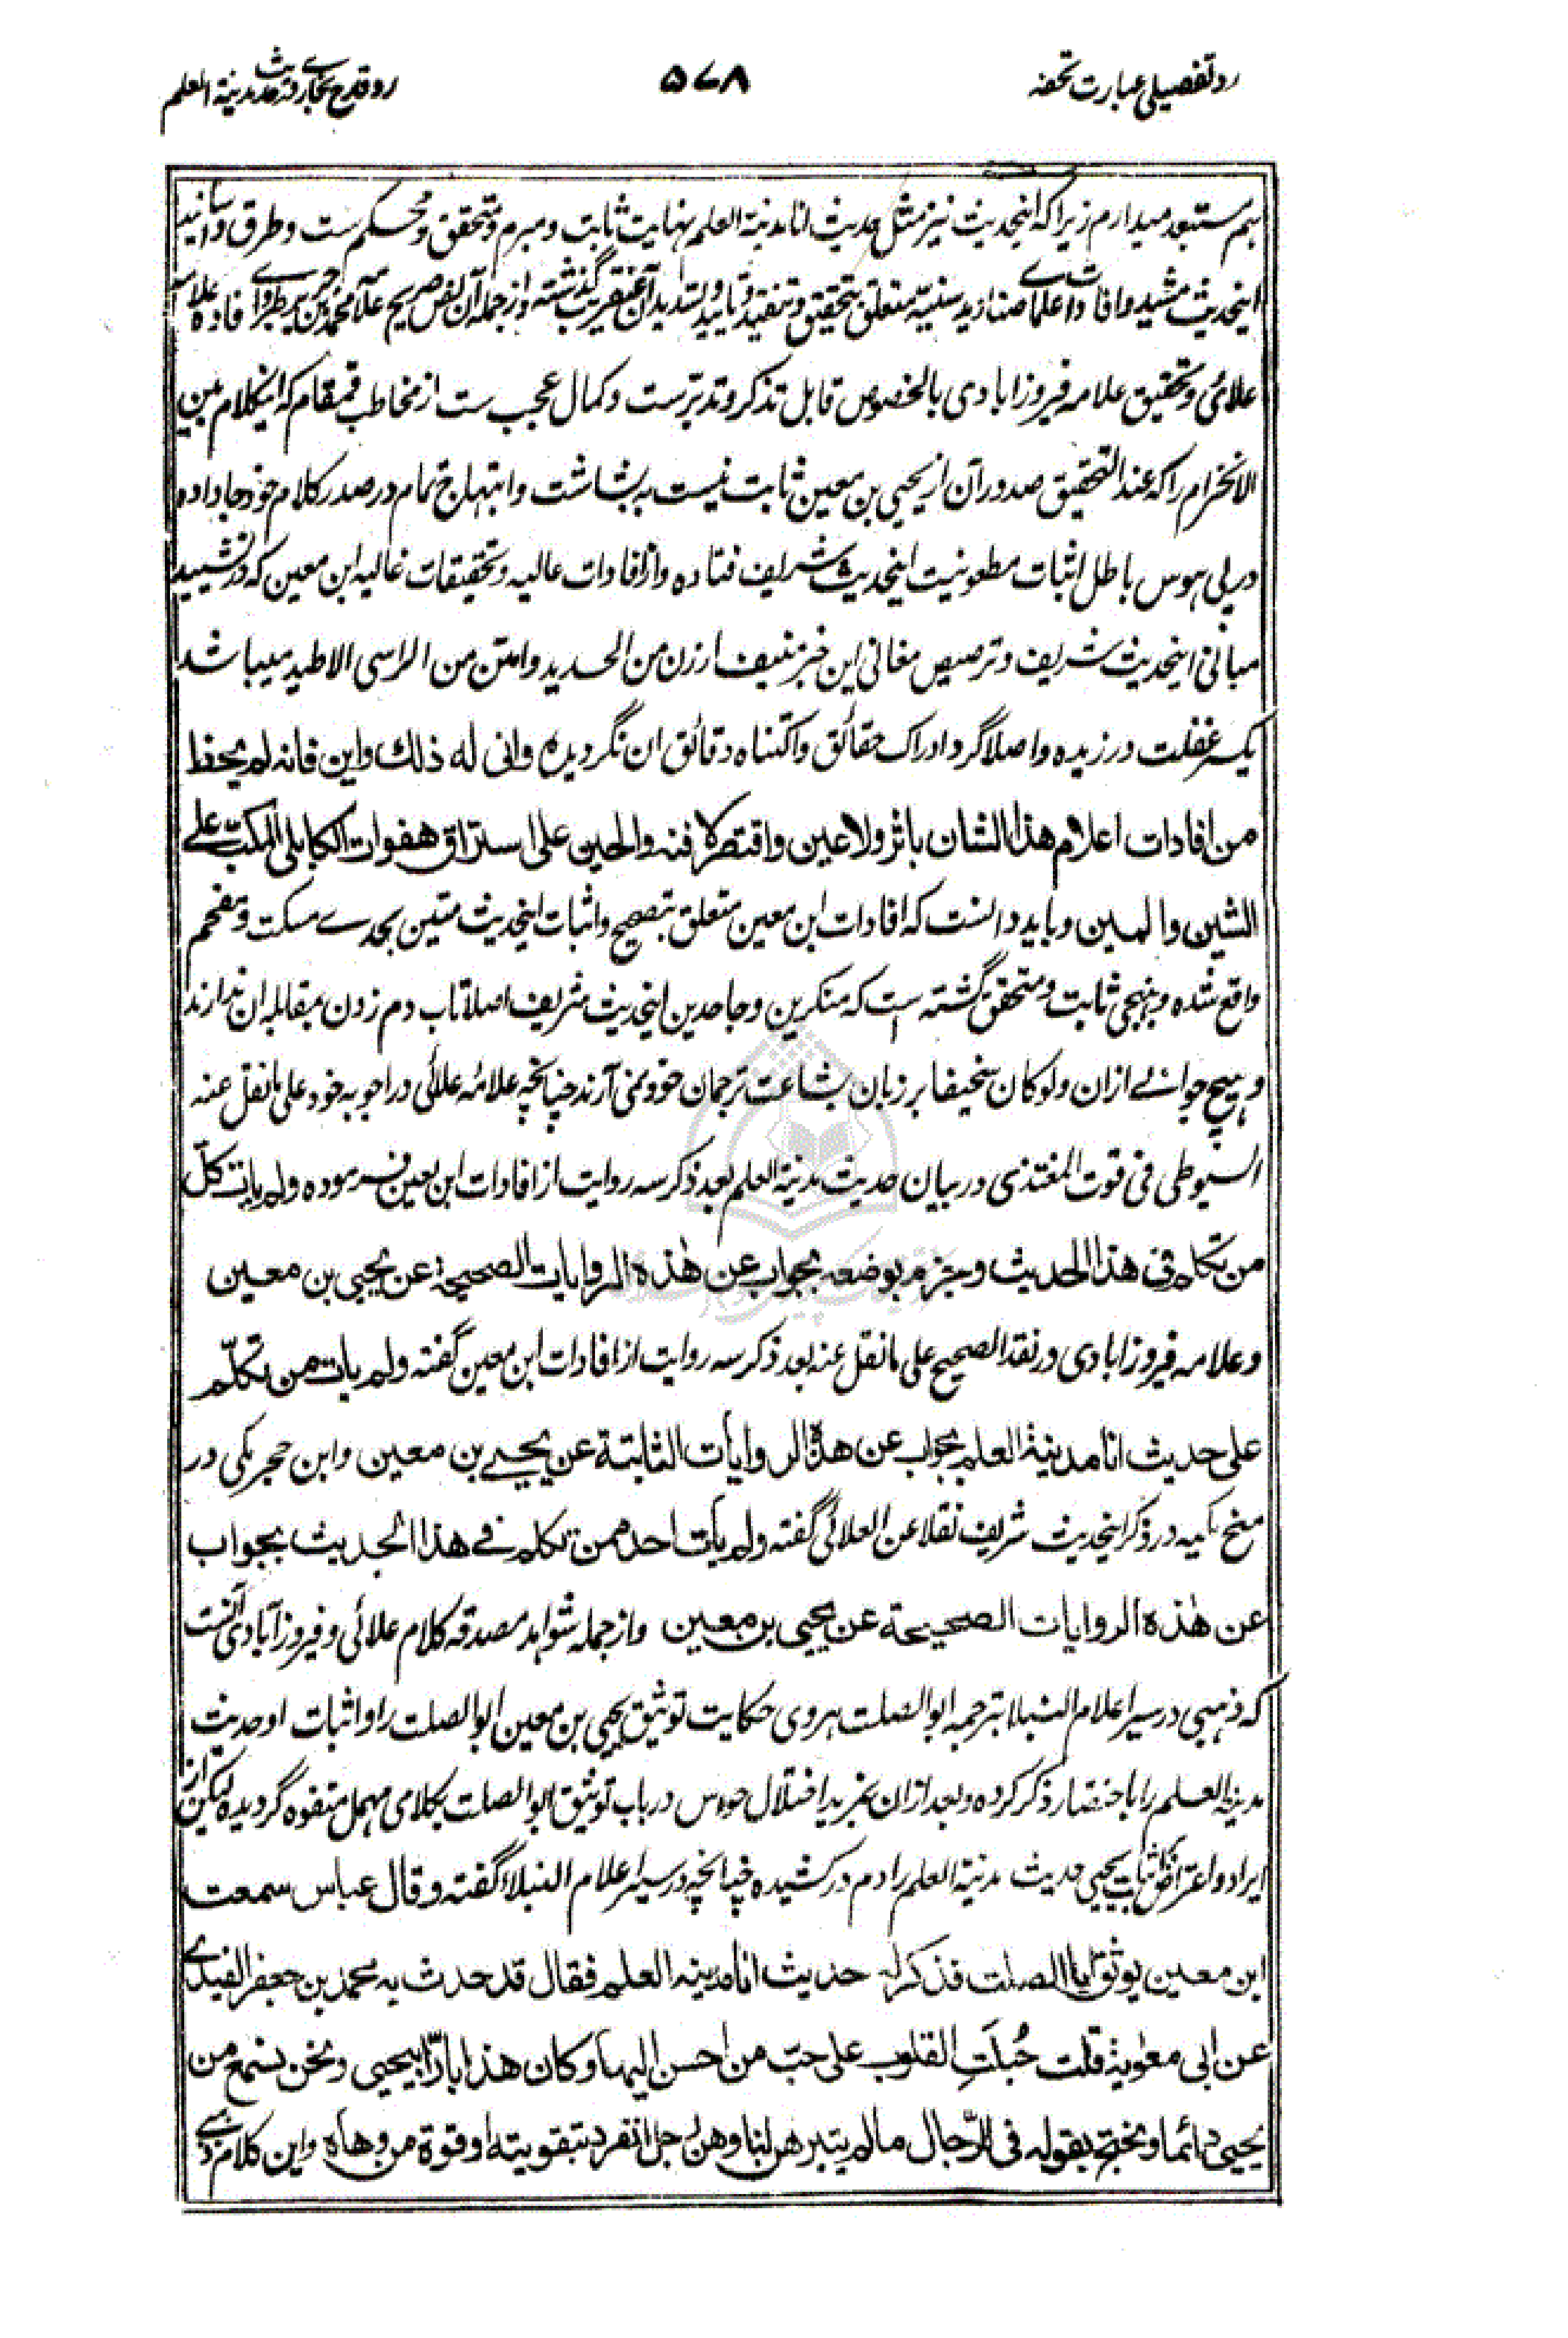 رد تفصیلی عبارت تحفه
۵۷۸
رد قدح بخاری در حدیث مدینة العلم
هم مستبعد میدارم زیرا که اینحدیث نیز مثل حدیث انا مدینة العلم نهایت ثابت و مبرم و متحقق و محکم ست و طرق و اسانید
اینحدیث مشید و افادات علمای صنادید سنیه متعلق بتحقیق و تنقید و تایید و تسدید آن عنقریب گذشته و از جمله آن نص صریح علامه محمد بن جریر طبری و افاده علامه
علائی و تحقیق علامه فیروزابادی بالخصوص قابل تذکر و تدبرست و کمال عجب ست از مخاطب قمقام که اینکلام بین
الانخرام را که عند التحقیق صدور آن از یحیی بن معین ثابت نیست به بشاشت و ابتهاج تمام در صدر کلام خود جا داده
در پی هوس باطل اثبات مطعونیت اینحدیث شریف فتاده و از افادات عالیه و تحقیقات غالیه ابن معین که در تشیید
مبانی اینحدیث شریف و ترصیص مغانی این خبر منیف ارزن من الحدید و امتن من الراسی الاطید میباشد
یکسر غفلت ورزیده و اصلا گرد ادراک حقائق و اکتناه دقائق ان نگردیده وانی له ذلك واین فانه لم يحفظ
من افادات اعلام هذا الشان باثر ولا عين واقتصر لافنه والحين على استراق هفوات الكابلى المكبّ على
الشين والمين و باید دانست که افادات ابن معین متعلق بتصحیح و اثبات اینحدیث متین بحدے مسکت و مفحم
واقع شده و بنهجی ثابت و متحقق گشته است که منکرین و جاحدین اینحدیث شریف اصلا تاب دم زدن بمقابله ان ندارند
و هیچ جوابے ازان ولو کان سخیفا بر زبان بشاعت ترجمان خود نمی آرند چنانچه علامه علائی در اجوبه خود علی ما نقل عنه
السیوطی فی قوت المغتذی در بیان حدیث مدینة العلم بعد ذکر سه روایت از افادات ابن معین فرموده ولم يات كلّ
من تكلم فى هذا الحديث وجزم بوضعه بجواب عن هٰذه الروايات الصحيحة عن يحيى بن معين
و علامه فیروزابادی در نقد الصحیح علی ما نقل عنه بعد ذکر سه روایت از افادات ابن معین گفته ولم يات من تكلّم
على حديث انا مدينة العلم بجواب عن هذه الروايات الثابتة عن يحيے بن معين و ابن حجر مکی در
منح مکیه در ذکر اینحدیث شریف نقلا عن العلائی گفته ولم يات احد ممن تكلم فے هذا الحديث بجواب
عن هٰذه الروايات الصحيحة عن يحيى بن معين و از جمله شواهد مصدقه کلام علائی و فیروزآبادی آنست
که ذهبی در سیر اعلام النبلا بترجمه ابو الصلت هروی حکایت توثیق یحیی بن معین ابو الصلت را و اثبات او حدیث
مدینة العلم را باختصار ذکر کرده و بعد ازان بمزید اختلال حواس در باب توثیق ابو الصلت بکلامی مهمل متفوه گردیده لیکن از
ایراد و اعتراض بر اثبات یحیی حدیث مدینة العلم را دم در کشیده چنانچه در سیر اعلام النبلا گفته وقال عباس سمعت
ابن معين يوثق ابا الصلت فذكر له حديث انا مدينه العلم فقال قد حدث به محمد بن جعفر الفيدى
عن ابى معٰوية قلت جُبلَتِ القلوب على حبّ من احسن اليها وكان هذا بارّا بيحيى ونحن نسمع من
يحيى دائما ونحتج بقوله فى الرّجال مالم يتبرهن لنا وهن رجل انفرد بتقويته او قوة من وهّاه و این کلام ذهبی